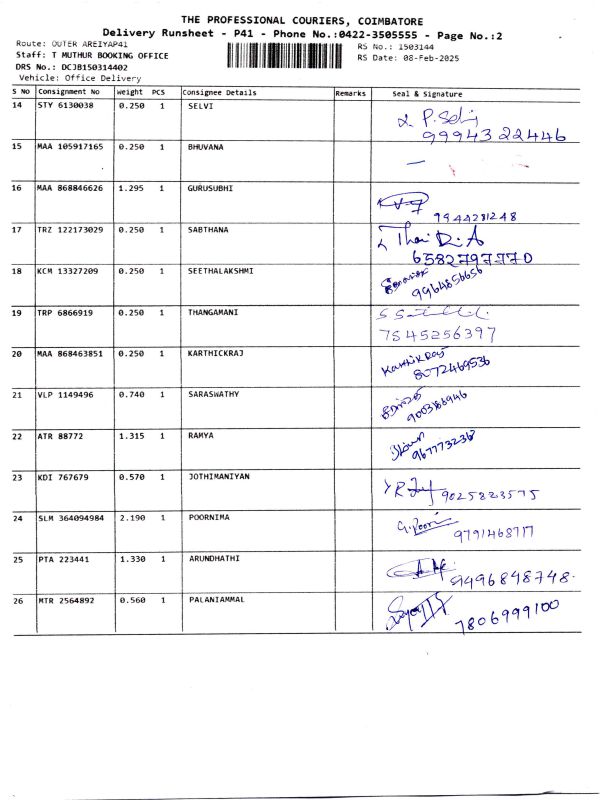 THE PROFESSIONAL COURIERS, COIMBATORE
Delivery Runsheet - P41 - Phone No.:0422-3505555 - Page No.:2
Route: OUTER AREIYAP41 RS No.: I503144
Staff: T MUTHUR BOOKING OFFICE RS Date: 08-Feb-2025
DRS No.: DCJB150314402
Vehicle: Office Delivery
S No Consignment No Weight PCS Consignee Details Remarks Seal & Signature
14 STY 6130038 0.250 1 SELVI P. Selvi
9994322446
15 MAA 105917165 0.250 1 BHUVANA
16 MAA 868846626 1.295 1 GURUSUBHI
9944281248
17 TRZ 122173029 0.250 1 SABTHANA
18 KCM 13327209 0.250 1 SEETHALAKSHMI
9964856656
19 TRP 6866919 0.250 1 THANGAMANI
7845256397
20 MAA 868463851 0.250 1 KARTHICKRAJ Karthik Raj
8072469536
21 VLP 1149496 0.740 1 SARASWATHY
22 ATR 88772 1.315 1 RAMYA
23 KDI 767679 0.570 1 JOTHIMANIYAN
9025823575
24 SLM 364094984 2.190 1 POORNIMA G. Poorni
25 PTA 223441 1.330 1 ARUNDHATHI
9496848748.
26 MTR 2564892 0.560 1 PALANIAMMAL
7806999100